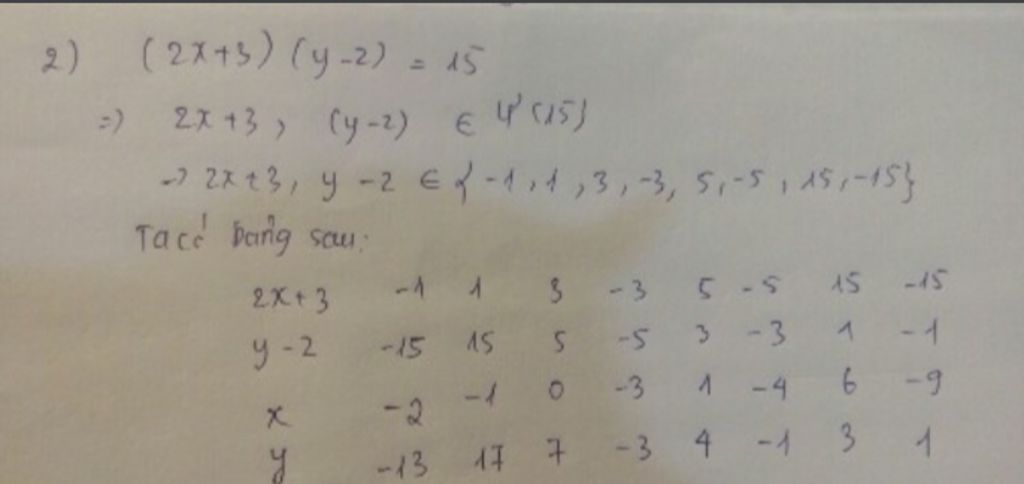 2) (2x+3)(y-2) = 15
=> 2x+3, (y-2) ∈ Ư(15}
-> 2x+3, y-2 ∈ {-1, 1, 3, -3, 5, -5, 15, -15}
Ta có bảng sau:
2x+3 -1 1 3 -3 5 -5 15 -15
y-2 -15 15 5 -5 3 -3 1 -1
x -2 -1 0 -3 1 -4 6 -9
y -13 17 7 -3 4 -1 3 1